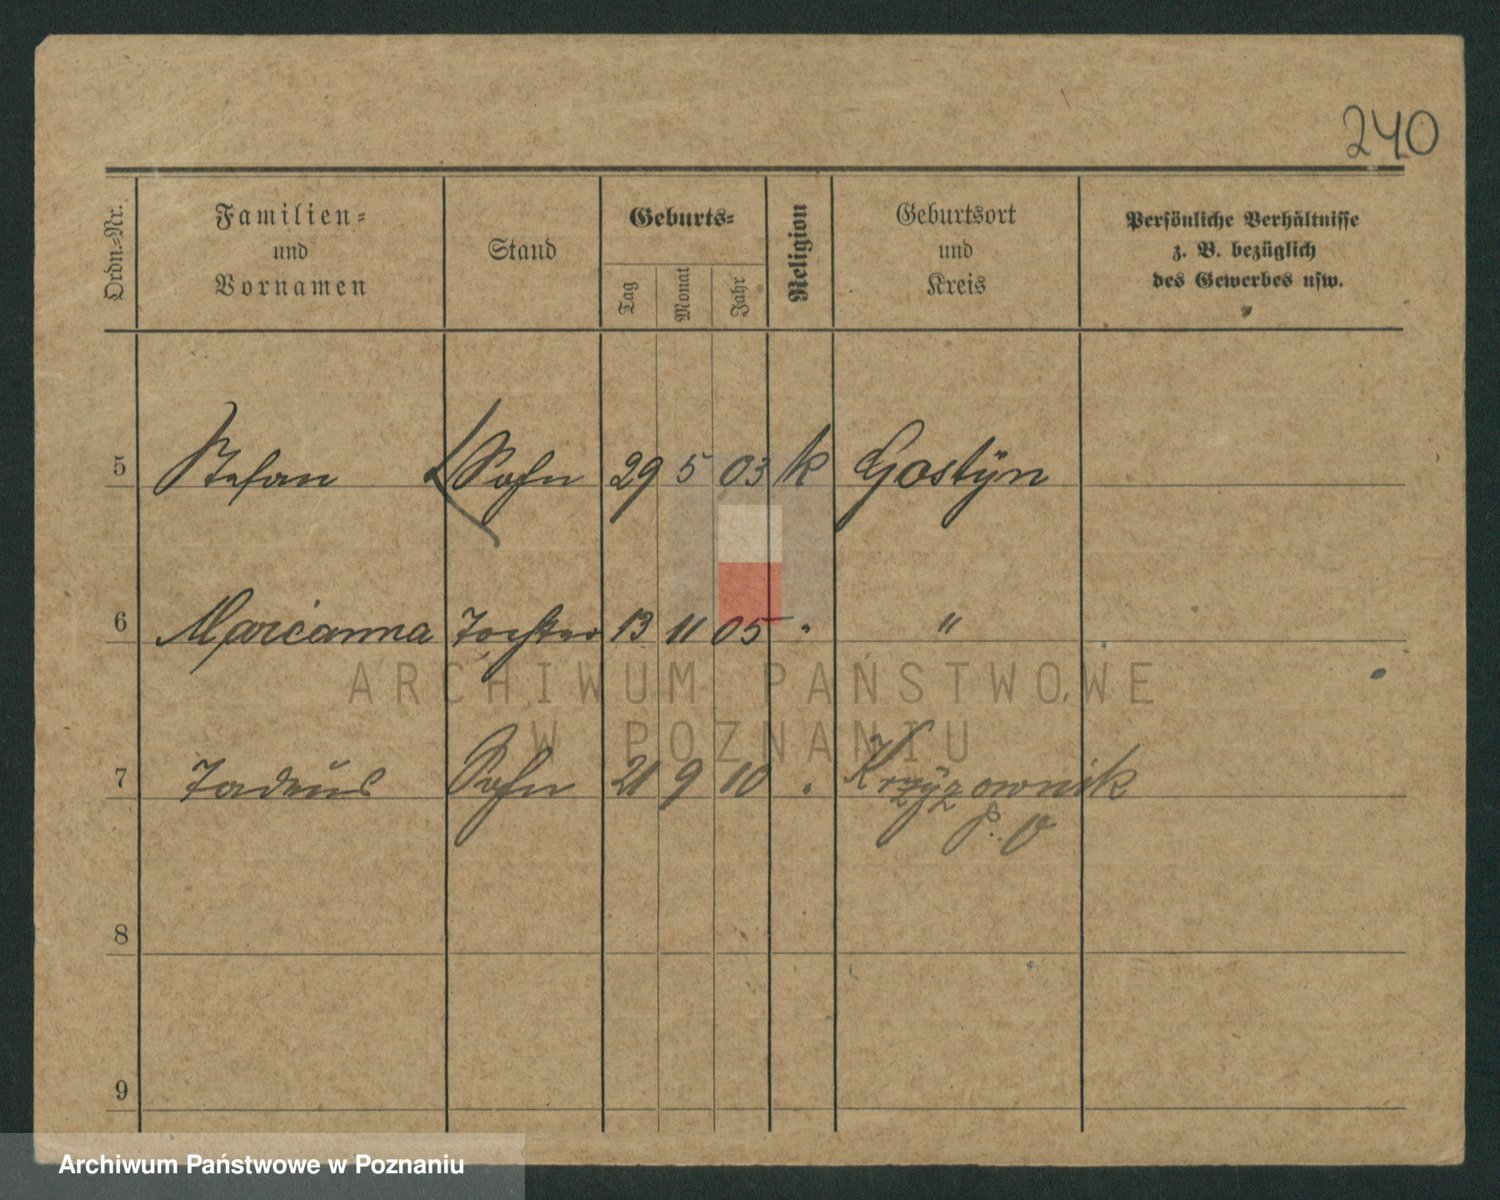 240
Ordn.-Nr.
Familien-
und
Vornamen
Stand
Geburts-
Tag
Monat
Jahr
Religion
Geburtsort
und
Kreis
Persönliche Verhältnisse
z. B. bezüglich
des Gewerbes usw.
5 Stefan Sohn 29 5 03 k Gostÿn
6 Marianna Tochter 13 11 05 " "
7 Tadeus Sohn 21 9 10 "
8
9
ARCHIWUM PAŃSTWOWE
W POZNANIU
Archiwum Państwowe w Poznaniu